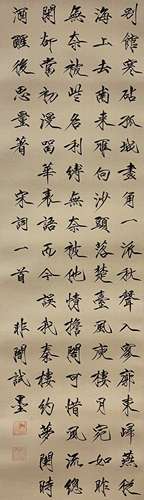 別館寒砧孤城畫角一派秋聲入寥廓東歸燕從
海上去南来雁向沙頭落楚臺風庾樓月宛如昨
無奈被些名利縛無奈被他情擔閣可惜風流總
閑却當初漫留華表語而今誤我秦樓約夢闌時
酒醒後思量著 宋詞一首 非 試墨